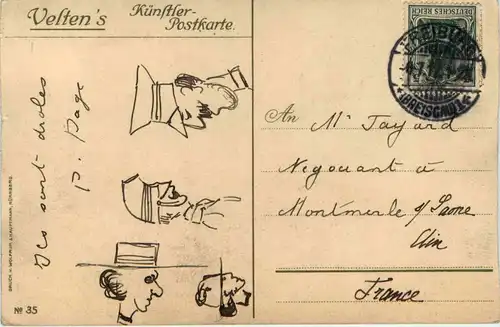 Velten's
Künstler-
Postkarte.
DEUTSCHES REICH
FREIBURG
(BREISGAU)
Ils sont droles
P. Page
An
Mr Fayard
Negociant à
Montmerle s/ Saone
Ain
France
DRUCK V. WOLFRUM & HAUPTMANN, NÜRNBERG.
No 35